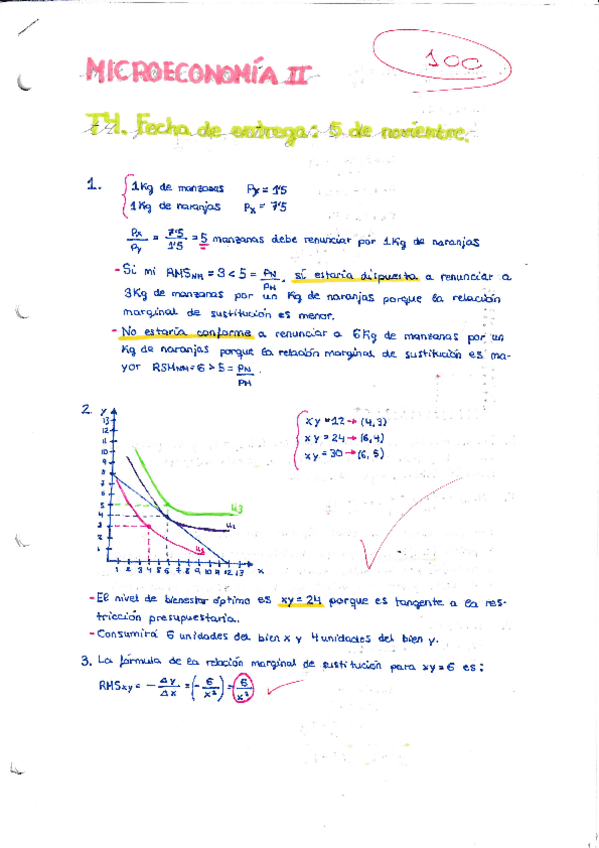 100
MICROECONOMÍA II
T4. Fecha de entrega: 5 de noviembre.
1. 1 Kg de manzanas Py = 1'5
1 Kg de naranjas Px = 7'5
Px/Py = 7'5/1'5 = 5 manzanas debe renunciar por 1 Kg de naranjas
- Si mi RMS NM = 3 < 5 = PN/PM, sí estaría dispuesta a renunciar a
3 Kg de manzanas por un Kg de naranjas porque la relación
marginal de sustitución es menor.
- No estaría conforme a renunciar a 6 Kg de manzanas por un
Kg de naranjas porque la relación marginal de sustitución es ma-
yor RSM NM = 6 > 5 = PN/PM.
2. y
13
12
11
10
9
8
7
6
5
4
3
2
1
1 2 3 4 5 6 7 8 9 10 11 12 13 x
u3
u2
u1
xy = 12 → (4,3)
xy = 24 → (6,4)
xy = 30 → (6,5)
- El nivel de bienestar óptimo es xy = 24 porque es tangente a la res-
tricción presupuestaria.
- Consumirá 6 unidades del bien x y 4 unidades del bien y.
3. La fórmula de la relación marginal de sustitución para xy = 6 es:
RMSxy = - Δy/Δx = (- 6/x²) = 6/x²